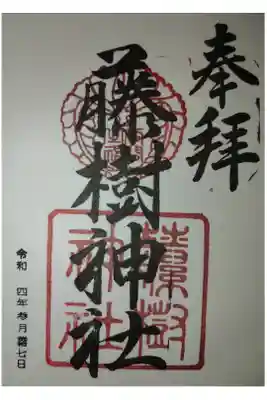 奉拝
藤樹神社
藤樹
神社
令和 四年参月 七日